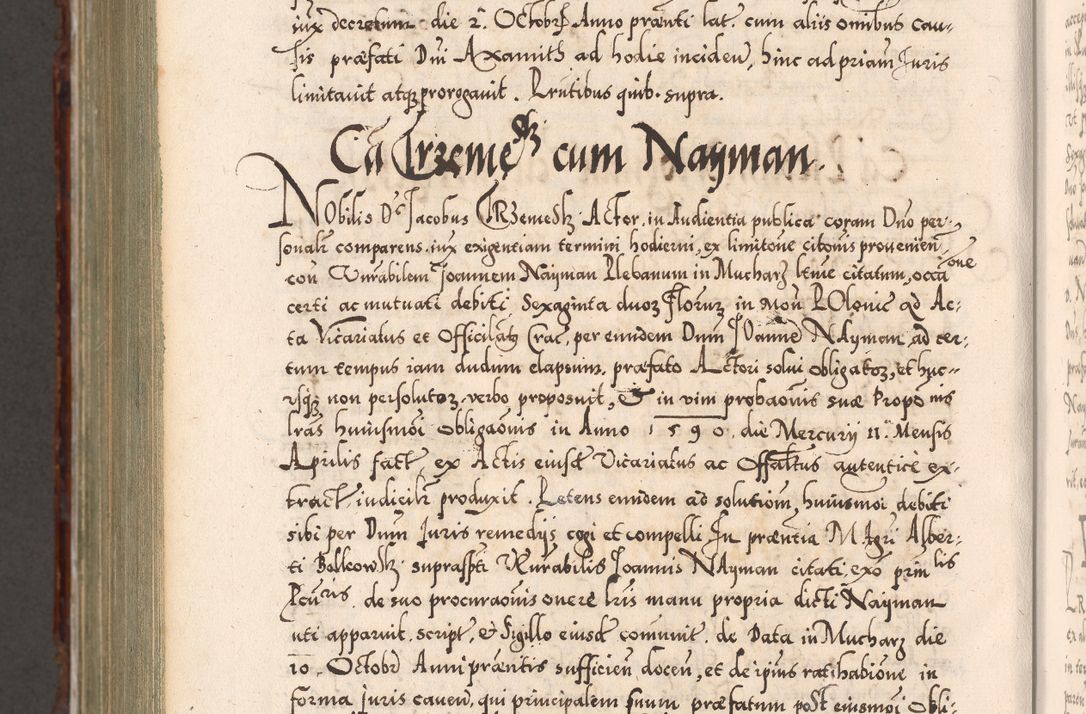 iux decretum die 2. Octobr Anno prænti lat. cum aliis omibus cau-
sis præfati Dni Axamith ad hodie inciden, hinc ad priam Juris
limitavit atq prorogavit. Prntibus quib. supra.
Ca Trzeme cum Nayman.
Nobilis Ds Jacobus Trzemeski Actor, in Audientia publica coram Dno per-
sonalr comparens, iux exigentiam termini hodierni, ex limitone citonis provenien
con Vnrabilem Joannem Nayman Plebanum in Mucharz lttme citatum, occa one
certi ac mutuati debiti Sexaginta duoz Florenz in Mon Polonic ad Ac-
ta Vicariatus et Officilatg Crac, per eundem Dnum Joannē Nayman, ad cer-
tum tempus iam dudum elapsum, præfato Actori solui obligatoz, et huc-
usqz non persolutoz verbo proposuit, Et in vim probaonis suæ Proponis
lras huiusmoi obligaonis in Anno 1590. die Mercurij 11. Mensis
Aprilis fact, ex Actis eiusd Vicariatus ac Offaltus autentice ex-
tract, iudicilr produxit. Petens eundem ad solutiom, huiusmoi debiti
sibi per Dnum Juris remedijs cogi et compelli. In præntia M Agri Alber-
ti Bolkowsk suprasspti Vnrabilis Joannis Nayman citati, exo prin lis
Pcuris, de suo procuraonis onere lris manu propria dicti Nayman
uti apparuit, script, et sigillo eiusd comunit, de Data in Mucharz die
10. Octobr Anni præntis sufficien docen, et de ipius ratihabione in
forma Juris caven, qui principalem suum præfatum post eiusmoi Obli-